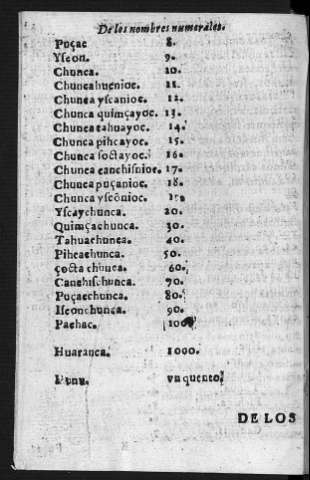 De los nombres numerales.
Puçac 8.
Yscon. 9.
Chunca. 10.
Chuncahucnioc. 11.
Chunca yscanioc. 12.
Chunca quimçayoc. 13.
Chunca tahuayoc. 14.
Chunca pihcayoc. 15.
Chunca soctayoc. 16.
Chunca canchisnioc. 17.
Chunca puçanioc. 18.
Chunca yscõnioc. 19.
Yscaychunca. 20.
Quimçachunca. 30.
Tahuachunca. 40.
Pihcachunca. 50.
çocta chunca. 60.
Canchischunca. 70.
Puçacchunca. 80.
Isconchunca. 90.
Pachac. 100
Huaranca. 1000.
vn quento.
DE LOS